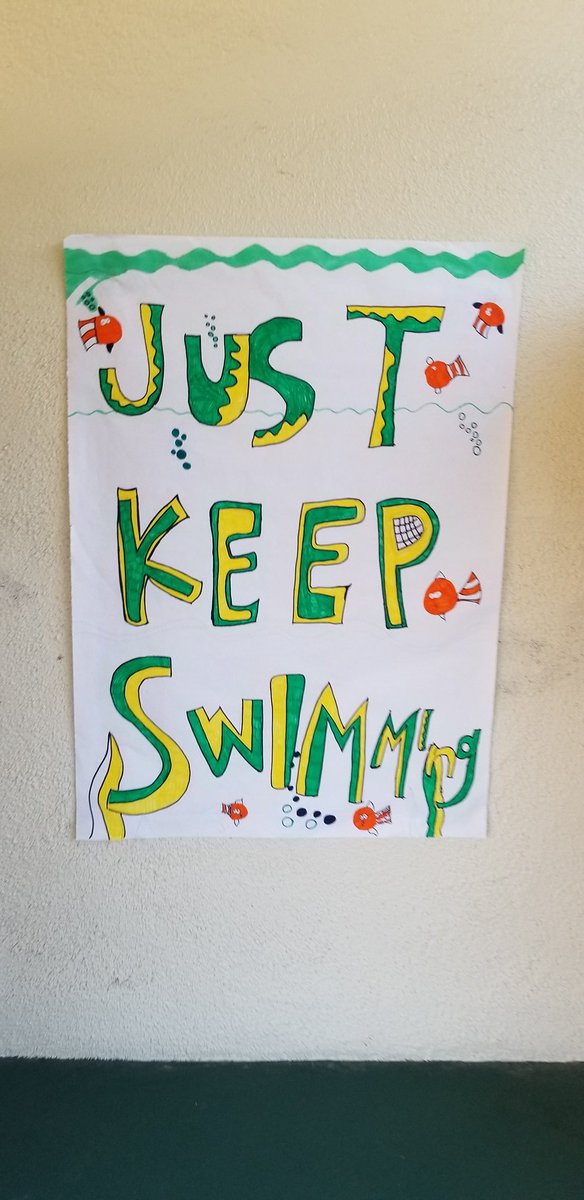 JUST
KEEP
SWIMMing